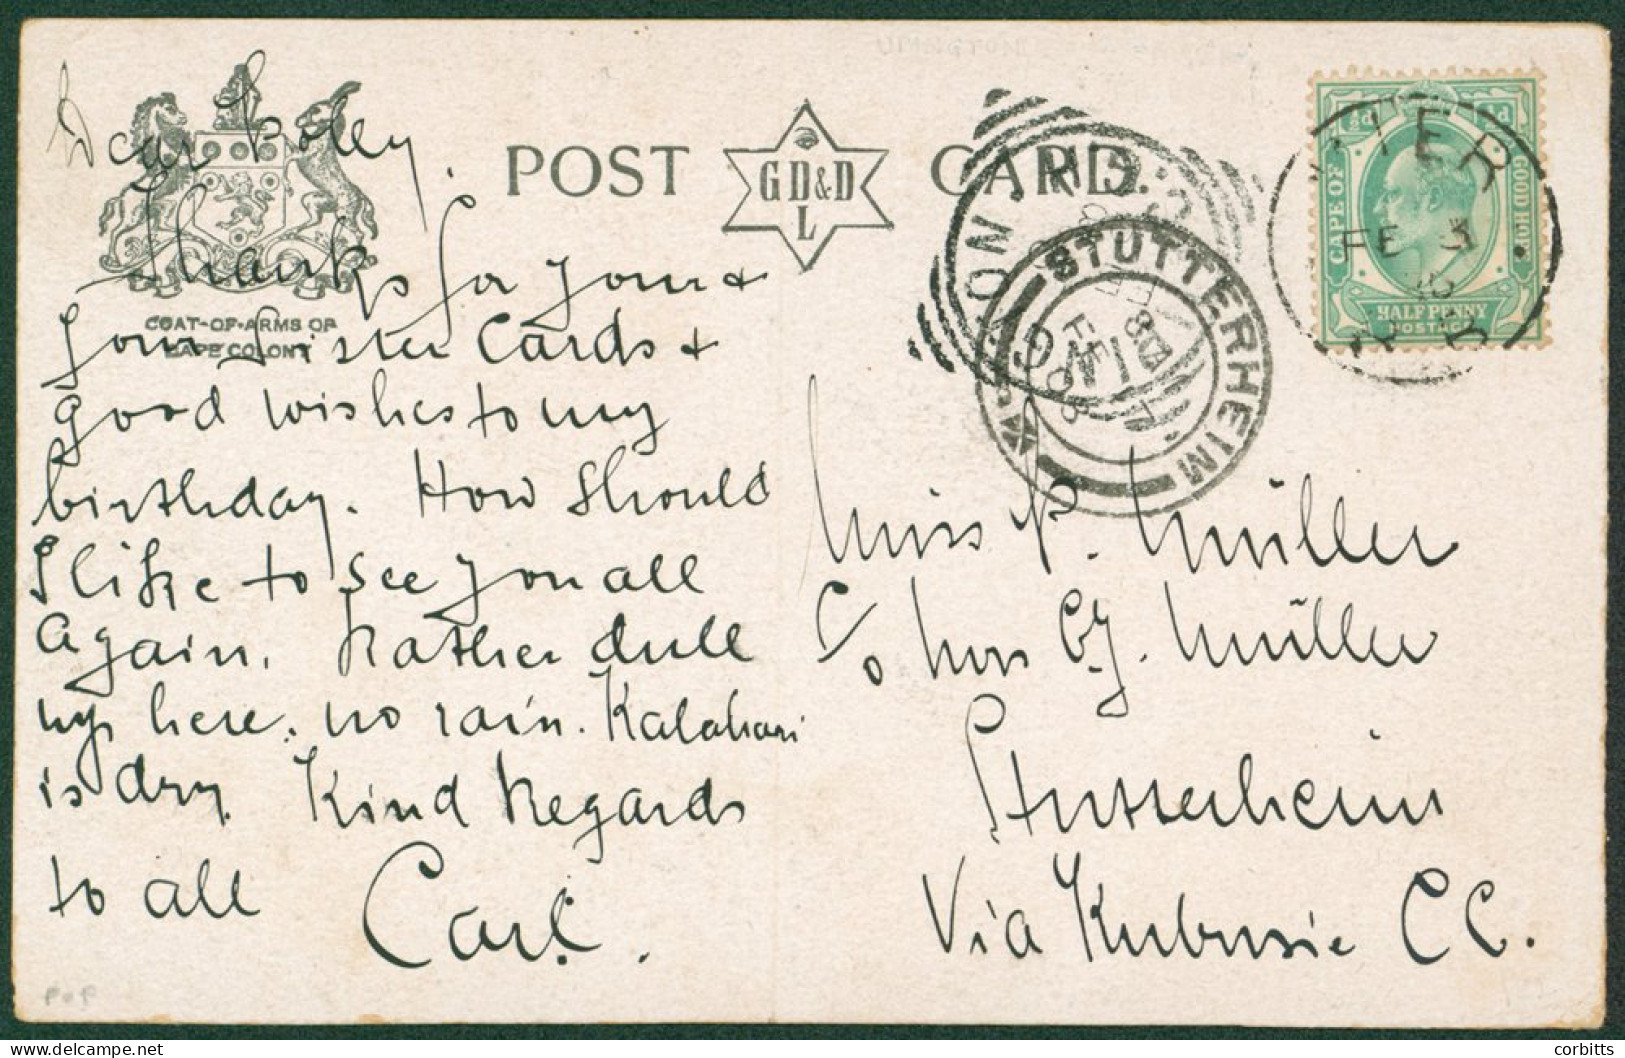 Dear Polly.
Thanks for your &
your Sister Cards &
good wishes to my
birthday. How should
I like to see you all
again. Rather dull
up here. no rain. Kalahari
is dry. Kind Regards
to all
Carl.
COAT-OF-ARMS OF
CAPE COLONY
POST CARD.
GD&D
L
STUTTERHEIM
FE
08
CAPE OF GOOD HOPE
½d ½d
HALFPENNY
POSTAGE
FE 3
Miss P. Müller
C/o Mrs C.J. Müller
Stutterheim
Via Kubusie CC.
POP
corbitts